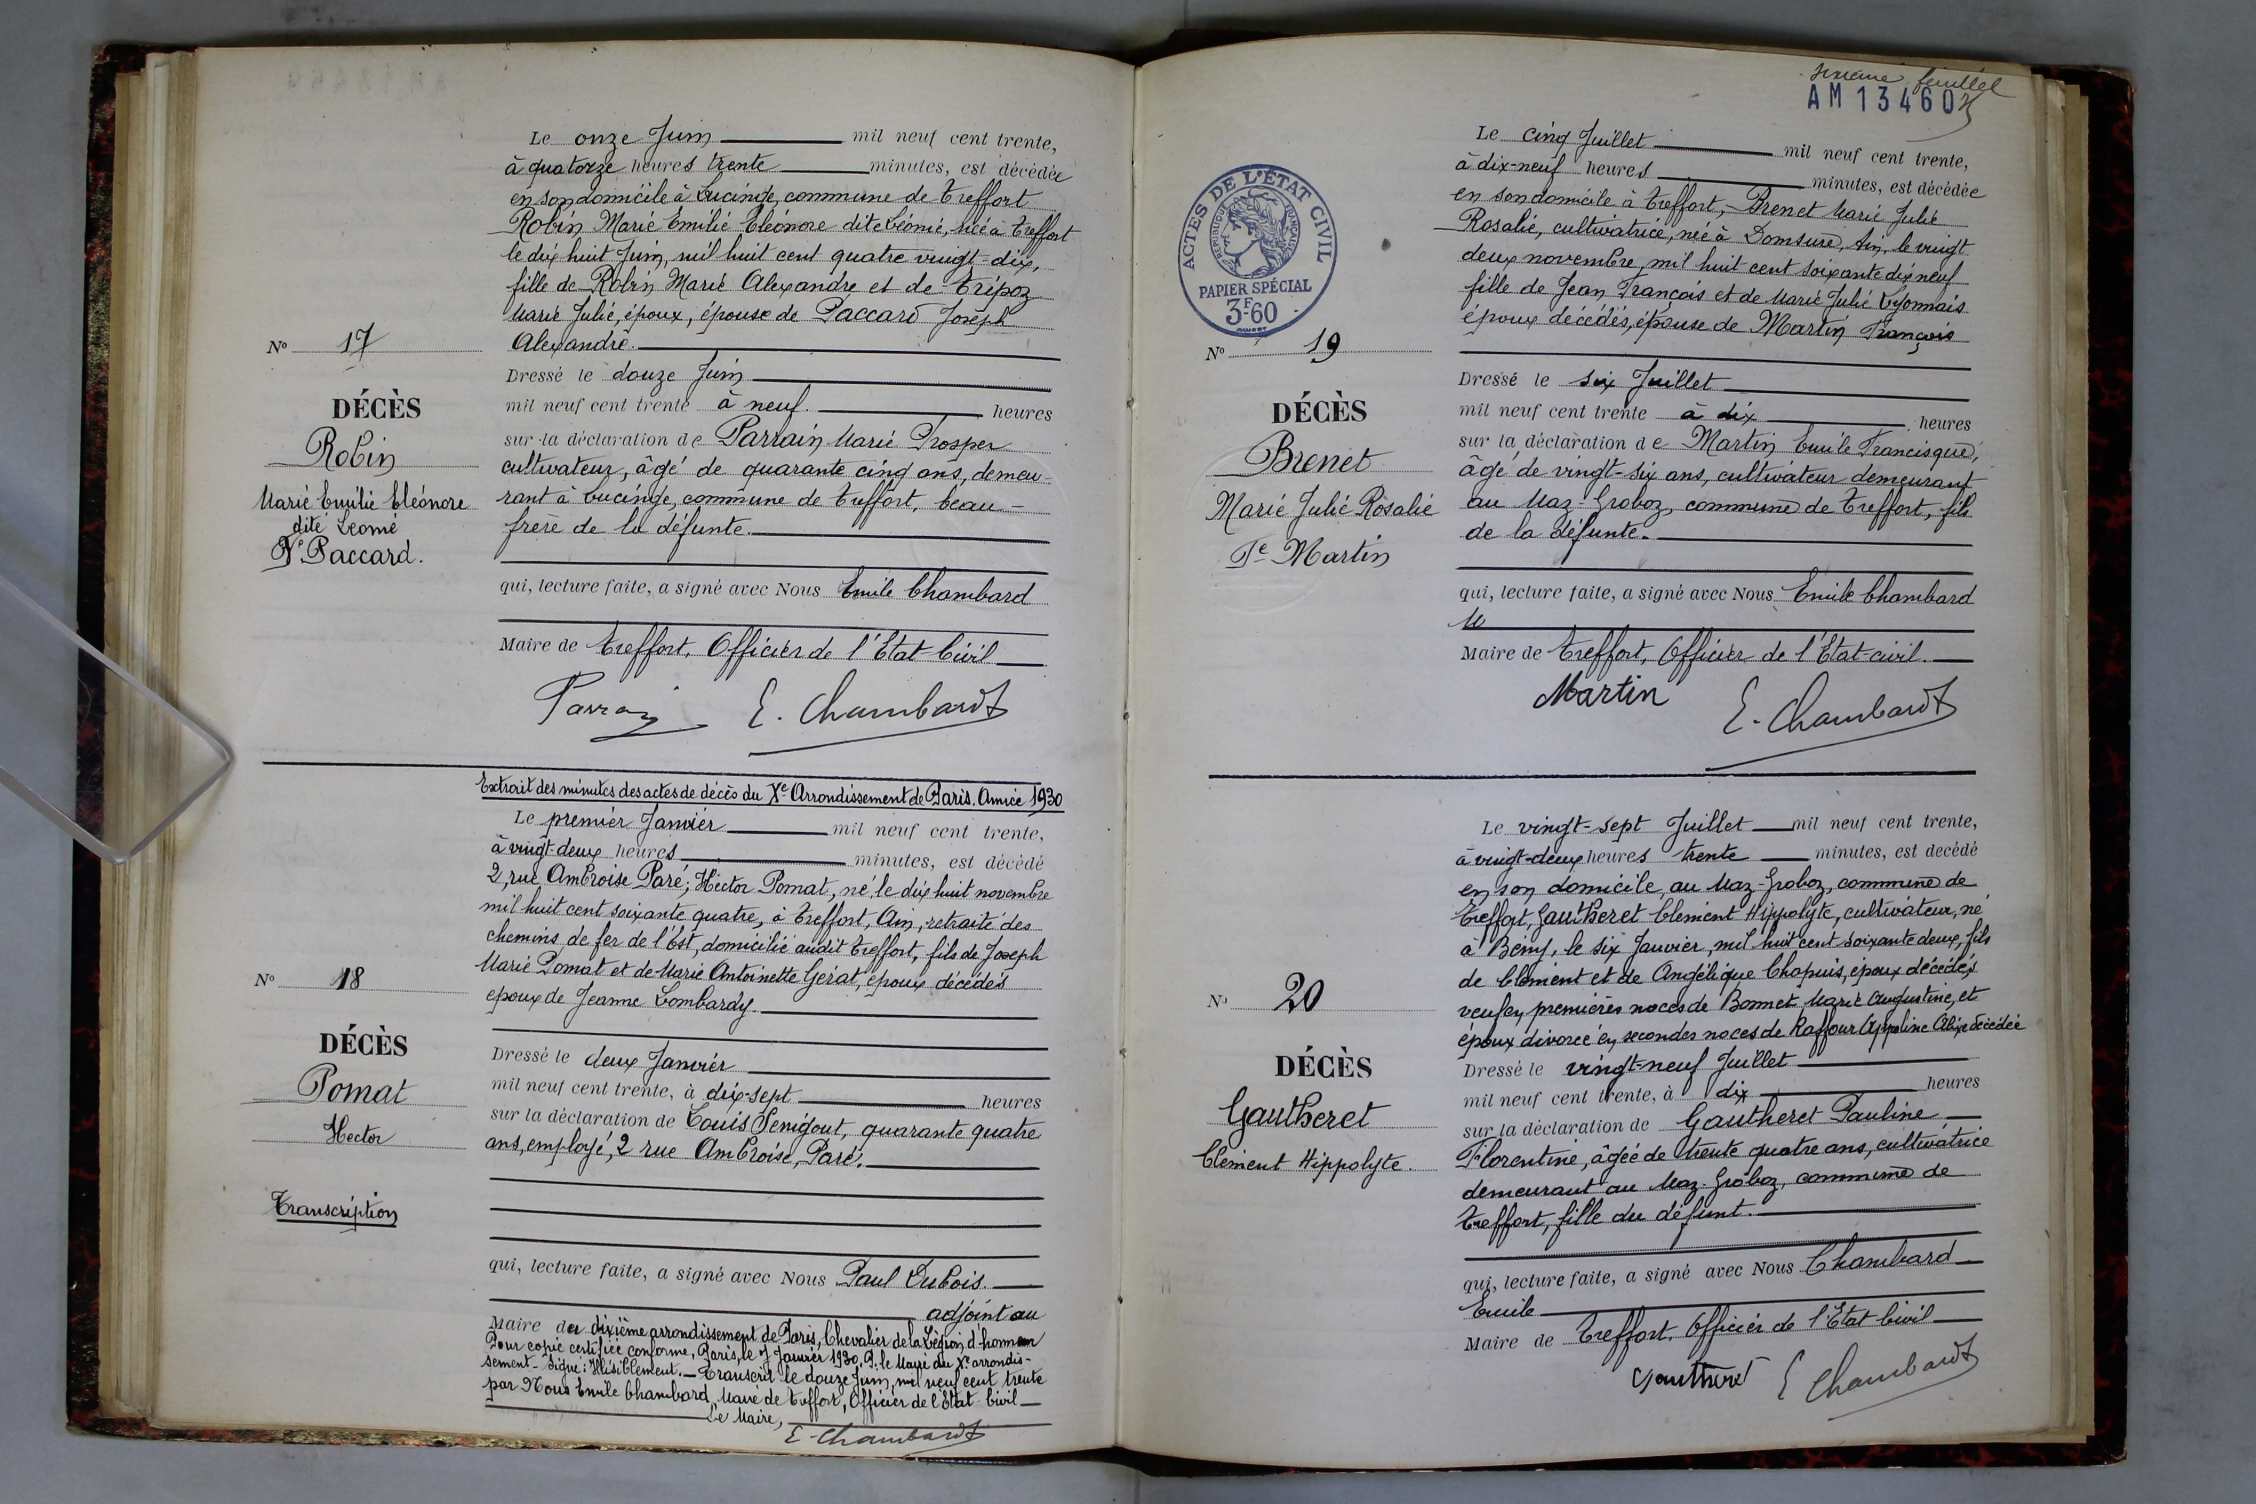 Le onze Juin mil neuf cent trente,
à quatorze heures trente minutes, est décédée
en son domicile à Lucinge, commune de Treffort
Robin Marie Emilie Eléonore dite Léonie, née à Treffort
le dix huit Juin, mil huit cent quatre vingt-dix,
fille de Robin Marie Alexandre et de Tripoz
Marie Julie, époux, épouse de Paccard Joseph
Alexandre.
No 17
DÉCÈS
Robin
Marie Emilie Eléonore
dite Léonie
Fe Paccard.
Dressé le douze Juin
mil neuf cent trente à neuf heures
sur la déclaration de Parrain Marie Prosper
cultivateur, âgé de quarante cinq ans, demeu-
rant à Lucinge, commune de Treffort, beau-
frère de la défunte.
qui, lecture faite, a signé avec Nous Emile Chambard
Maire de Treffort, Officier de l'Etat-Civil
Parrain E. Chambard
Extrait des minutes des actes de décès du Xe Arrondissement de Paris. Année 1930
Le premier Janvier mil neuf cent trente,
à vingt-deux heures minutes, est décédé
2, rue Ambroise Paré; Hector Pomat, né le dix huit novembre
mil huit cent soixante quatre, à Treffort, Ain, retraité des
chemins de fer de l'Est, domicilié audit Treffort, fils de Joseph
Marie Pomat et de Marie Antoinette Gérat, époux décédés
epoux de Jeanne Lombardy.
No 18
DÉCÈS
Pomat
Hector
Transcription
Dressé le deux Janvier
mil neuf cent trente, à dix-sept heures
sur la déclaration de Louis Senigout, quarante quatre
ans, employé, 2 rue Ambroise Paré.
qui, lecture faite, a signé avec Nous Paul Dubois.
adjoint au
Maire du dixième arrondissement de Paris, Chevalier de la Légion d'honneur
Pour copie certifiée conforme, Paris, le 7 Janvier 1930. P. le Maire du Xe arrondis-
sement - Signé: Illisiblement. - Transcrit le douze Juin, mil neuf cent trente
par Nous Emile Chambard, Maire de Treffort, Officier de l'Etat-Civil
Le Maire,
E. Chambard
sixième feuillet
AM 13460
Le cinq Juillet mil neuf cent trente,
à dix-neuf heures minutes, est décédée
en son domicile à Treffort, Brenet Marie Julie
Rosalie, cultivatrice, née à Domsure, Ain, le vingt
deux novembre, mil huit cent soixante dix neuf
fille de Jean François et de Marie Julie Lyonnais
époux décédés, épouse de Martin François
ACTES DE L'ETAT CIVIL
RÉPUBLIQUE FRANÇAISE
PAPIER SPÉCIAL
3F60
No 19
DÉCÈS
Brenet
Marie Julie Rosalie
Fe Martin
Dressé le six Juillet
mil neuf cent trente à dix heures
sur la déclaration de Martin Emile Francisque,
âgé de vingt-six ans, cultivateur demeurant
au Maz-Groboz, commune de Treffort, fils
de la défunte.
qui, lecture faite, a signé avec Nous Emile Chambard
Maire de Treffort, Officier de l'Etat-civil.
Martin E. Chambard
Le vingt-sept Juillet mil neuf cent trente,
à vingt-deux heures trente minutes, est décédé
en son domicile, au Maz-Groboz, commune de
Treffort, Gautheret Clément Hippolyte, cultivateur, né
à Bény, le six Janvier, mil huit cent soixante deux, fils
de Clément et de Angélique Chapuis, époux décédés,
veuf en premières noces de Bonnet Marie Augustine, et
époux divorcé en secondes noces de Raffour Appoline Alix décédée
No 20
DÉCÈS
Gautheret
Clément Hippolyte.
Dressé le vingt-neuf Juillet
mil neuf cent trente, à dix heures
sur la déclaration de Gautheret Pauline
Florentine, âgée de trente quatre ans, cultivatrice
demeurant au Maz-Groboz, commune de
Treffort, fille du défunt.
qui, lecture faite, a signé avec Nous Chambard
Emile
Maire de Treffort, Officier de l'Etat Civil
Gautheret E Chambard